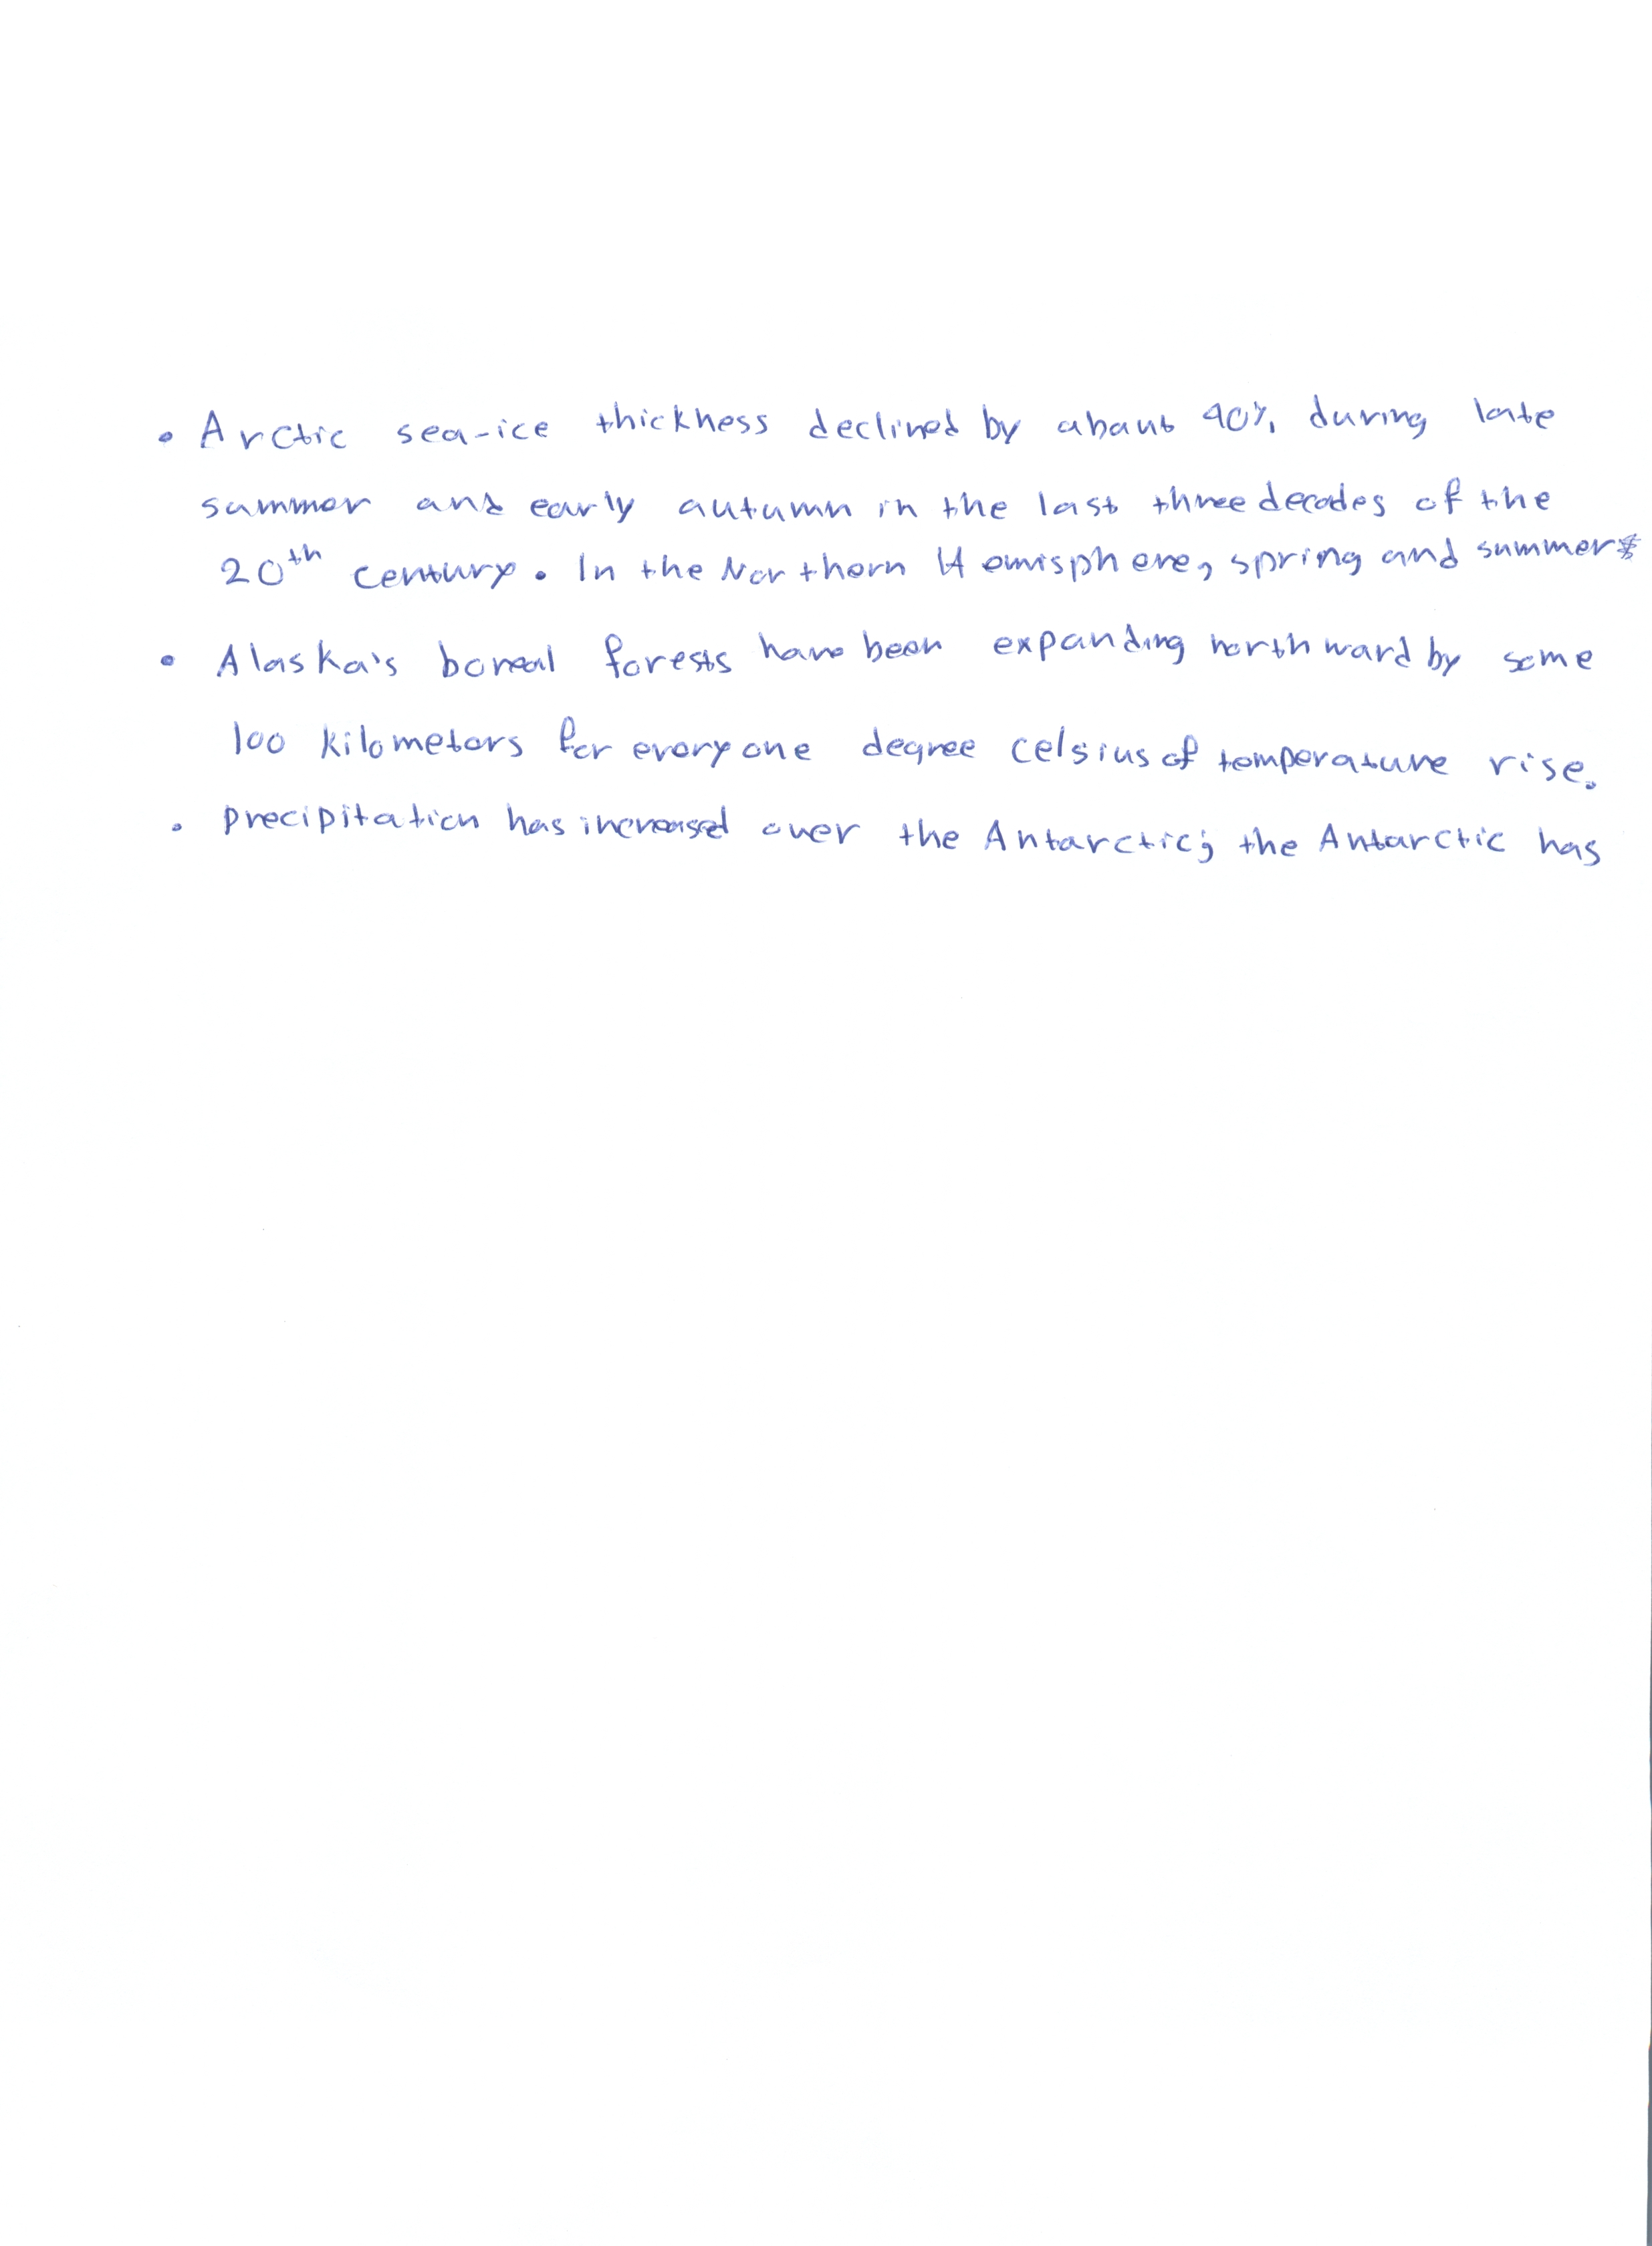 • Arctic sea-ice thickness declined by about 40% during late
summer and early autumn in the last three decades of the
20th century. In the Northern Hemisphere, spring and summer
• Alaska's boreal forests have been expanding northward by some
100 kilometers for every one degree celsius of temperature rise.
• Precipitation has increased over the Antarctic; the Antarctic has